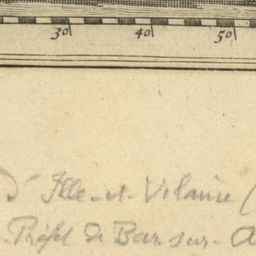 30 40 50
d'Ille-et-Vilaine (
Préfet de Bar-sur-A